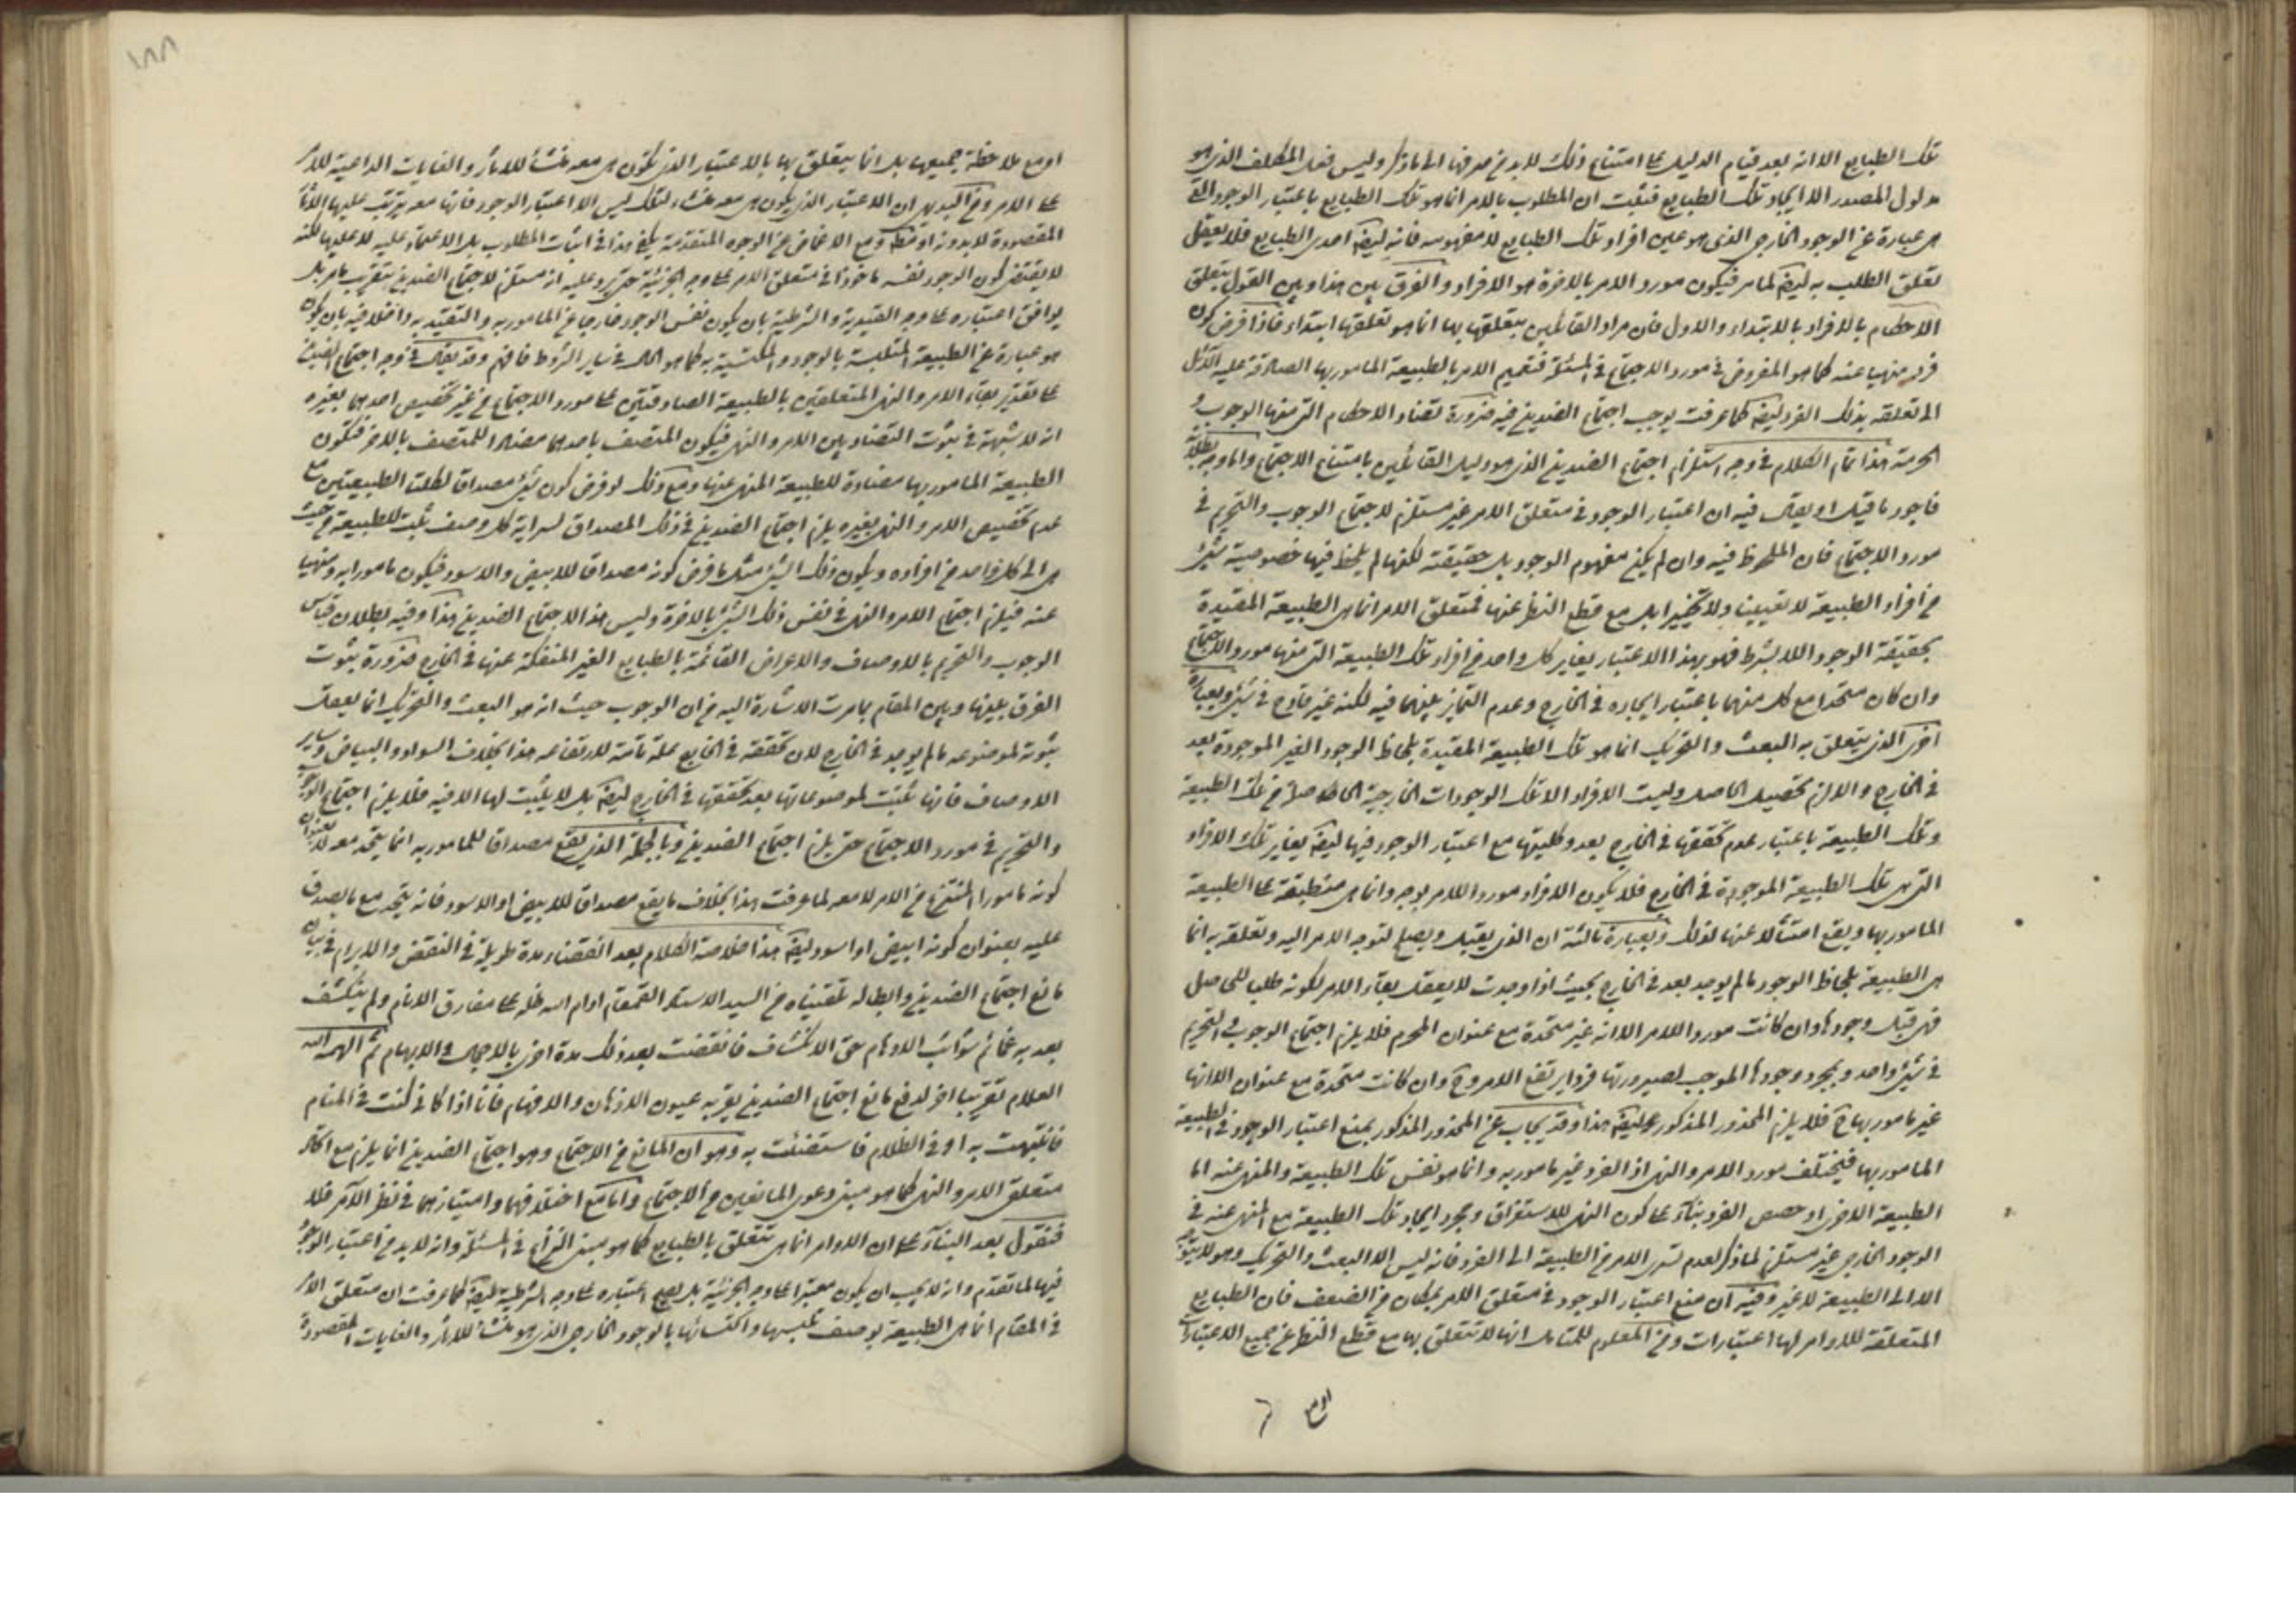 تلك الطبايع الا انه بعد قيام الدليل على امتناع ذلك لا بد من صرفها الى ما ذكر وليس فعل المكلف الذى هو
مدلول المصدر الا ايجاد تلك الطبايع فثبت ان المطلوب بالامر انما هو تلك الطبايع باعتبار الوجود التى
هى عبارة عن الوجود الخارجى الذى هو عين افراد تلك الطبايع لا مفهومه فانه ايضا احدى الطبايع فلا يعقل
تعلق الطلب به ايضا لما مر فيكون مورد الامر بالاخرة هو الافراد والفرق بين هذا وبين القول بتعلق
الاحكام بالافراد بالابتداء والاول فان مراد القائلين بتعلقها بها انما هو تعلقها ابتداء فاذا فرض كون
فرد منهيا عنه كما هو المفروض فى مورد الاجتماع فى المسئلة فتعميم الامر بالطبيعة المامور بها الصادقة عليه
الى تعلقه بذلك الفرد ايضا كما عرفت يوجب اجتماع الضدين فيه ضرورة تضاد الاحكام التى منها الوجوب و
الحرمة هذا تمام الكلام فى وجه استلزام اجتماع الضدين الذى هو دليل القائلين بامتناع الاجتماع واما وجه بطلانه
فاجود ما قيل او يقال فيه ان اعتبار الوجود فى متعلق الامر غير مستلزم لاجتماع الوجوب والتحريم فى
مورد الاجتماع فان الملحوظ فيه وان لم يكن مفهوم الوجود بل حقيقته لكنها لم يلحظ فيها خصوصية شىء
من افراد الطبيعة لا تعيينا ولا تخييرا بل مع قطع النظر عنها فمتعلق الامر انما هى الطبيعة المقيدة
بحقيقة الوجود اللا بشرط فهو بهذا الاعتبار يغاير كل واحد من افراد تلك الطبيعة التى منها مورد الاجتماع
وان كان متحدا مع كل منهما باعتبار ايجاده فى الخارج وعدم التمايز بينهما فيه لكنه غير قادح فى شىء وبعبارة
اخرى الذى يتعلق به البعث والتحريك انما هو تلك الطبيعة المقيدة بلحاظ الوجود الغير الموجودة بعد
فى الخارج والا لزم تحصيل الحاصل وليست الافراد الا تلك الوجودات الخارجية الحاصلة من تلك الطبيعة
وتلك الطبيعة باعتبار عدم تحققها فى الخارج بعد وكليتها مع اعتبار الوجود فيها ايضا يغاير تلك الافراد
التى هى تلك الطبيعة الموجودة فى الخارج فلا يكون الافراد موردا للامر بوجه وانما هى منطبقة على الطبيعة
المامور بها ويقع امتثالا عنها لذلك وبعبارة ثالثة ان الذى يقبل ويصلح لتوجه الامر اليه وتعلقه به انما
هى الطبيعة بلحاظ الوجود ما لم يوجد بعد فى الخارج بحيث اذا وجدت لا يعقل بقاء الامر لكونه طلب للحاصل
فهى قبل وجودها وان كانت موردا للامر الا انه غير متحدة مع عنوان المحرم فلا يلزم اجتماع الوجوب والتحريم
فى شىء واحد وبمجرد وجودها الموجب لصيرورتها فردا يرتفع الامر وح وان كانت متحدة مع عنوان الا انها
غير مامور بها ح فلا يلزم المحذور المذكور ايضا هذا وقد يجاب عن المحذور المذكور بمنع اعتبار الوجود فى الطبيعة
المامور بها فيختلف مورد الامر والنهى اذ الفرد غير مامور به وانما هو نفس تلك الطبيعة والمنهى عنه اما
الطبيعة الاخرى او خصص الفرد بناء على كون النهى للاستغراق ومجرد ايجاد تلك الطبيعة مع المنهى عنه فى
الوجود الخارجى غير مستلزم لما ذكر لعدم تسرى الامر من الطبيعة الى الفرد فانه ليس الا البعث والتحريك وهو لا يتوجه
الا الى الطبيعة لا غير وفيه ان منع اعتبار الوجود فى متعلق الامر بمكان من الضعف فان الطبايع
المتعلقة للاوامر لها اعتبارات ومن المعلوم للمتامل انها لا تتعلق بها مع قطع النظر عن جميع الاعتبارات
١٨٨
او مع ملاحظة جميعها بل انما يتعلق بها بالاعتبار الذى تكون هى معه منشأ للاثار والغايات الداعية للامر
على الامر ومن البديهى ان الاعتبار الذى يكون هى معه منشاء لتلك ليس الا اعتبار الوجود فانها معه يترتب عليها الاثار
المقصودة لا بدونه او قطع ومع الاغماض عن الوجوه المتقدمة يكفى هذا فى اثبات المطلوب بل الاعتماد عليه لا عليها لكنه
لا يقتضى كون الوجود نفسه ماخوذا فى متعلق الامر على وجه الجزئية حتى يرد عليه انه مستلزم لاجتماع الضدين بتقريب ما مر بل
يوافق اعتباره على وجه القيدية والشرطية بان يكون نفس الوجود خارجا عن المامور به والتقيد به داخلا فيه بان يكون
هو عبارة عن الطبيعة المتلبسة بالوجود والمكتسية به كما هو الحال فى ساير الشروط فافهم وقد يقال فى وجه اجتماع الضدين
على تقدير بقاء الامر والنهى المتعلقين بالطبيعة الصادقتين على مورد الاجتماع من غير تخصيص احدهما بغيره
انه لا شبهة فى ثبوت التضاد بين الامر والنهى فيكون المتصف باحدهما مضادا للمتصف بالاخر فتكون
الطبيعة المامور بها مضادة للطبيعة المنهى عنها ومع ذلك لو فرض كون شىء مصداقا لكلتا الطبيعتين مع
عدم تخصيص الامر والنهى بغيره يلزم اجتماع الضدين فى ذلك المصداق لسراية كل وصف ثابت للطبيعة من حيث
هى الى كل واحد من افراده ويكون ذلك الشىء مثل ما فرض كونه مصداقا للابيض والاسود فيكون مامورا به ومنهيا
عنه فيلزم اجتماع الامر والنهى فى نفس ذلك الشىء بالاخرة وليس هذا الا اجتماع الضدين هذا وفيه بطلان قياس
الوجوب والتحريم بالاوصاف والاعراض القائمة بالطبايع الغير المنفكة عنها فى الخارج ضرورة ثبوت
الفرق بينها وبين المقام بما مرت الاشارة اليه من ان الوجوب حيث انه هو البعث والتحريك انما يعقل
ثبوته لموضوعه ما لم يوجد فى الخارج لان تحققه فى الخارج علة تامة لارتفاعه هذا بخلاف السواد والبياض وساير
الاوصاف فانها تثبت لموضوعاتها بعد تحققها فى الخارج ايضا بل لا يثبت لها الا فيه فلا يلزم اجتماع الوجوب
والتحريم فى مورد الاجتماع حتى يلزم اجتماع الضدين وبالجملة الذى يقع مصداقا للمامور به انما يتحد معه لا بعنوان
كونه مامورا المنتزع من الامر لا معه لما عرفت هذا بخلاف ما يقع مصداقا للابيض او الاسود فانه يتحد مع ما يصدق
عليه بعنوان كونه ابيض او اسود ايضا هذا خلاصة الكلام بعد انقضاء مدة طويلة فى النقض والابرام فى بيان
مانع اجتماع الضدين وابطاله تلقيناه من السيد الاستاد القمقام ادام الله ظله على مفارق الانام ولم ينكشف
بعد به غمائم شوائب الاوهام حق الانكشاف فانقضت بعد ذلك مدة اخرى بالاجمال والابهام ثم الهمه الله
العلام تقريبا اخر لدفع مانع اجتماع الضدين يقر به عيون الاذهان والافهام فانا اذا كانى كنت فى المنام
فانتبهت به او فى الظلام فاستضئت به وهو ان المانع من الاجتماع وهو اجتماع الضدين انما يلزم مع اتحاد
متعلق الامر والنهى كما هو مبنى دعوى المانعين من الاجتماع واما مع اختلافهما وامتيازهما فى نظر الآمر فلا
فنقول بعد البناء على ان الاوامر انما هى تتعلق بالطبايع كما هو مبنى النزاع فى المسئلة وانه لا بد من اعتبار الوجود
فيها لما تقدم وانه لا يجب ان يكون معتبرا على وجه الجزئية بل يصح اعتباره على وجه الشرطية ايضا كما عرفت ان متعلق الامر
فى المقام انما هى الطبيعة بوصف تلبسها واكتسائها بالوجود الخارجى الذى هو منشأ للاثار والغايات المقصودة